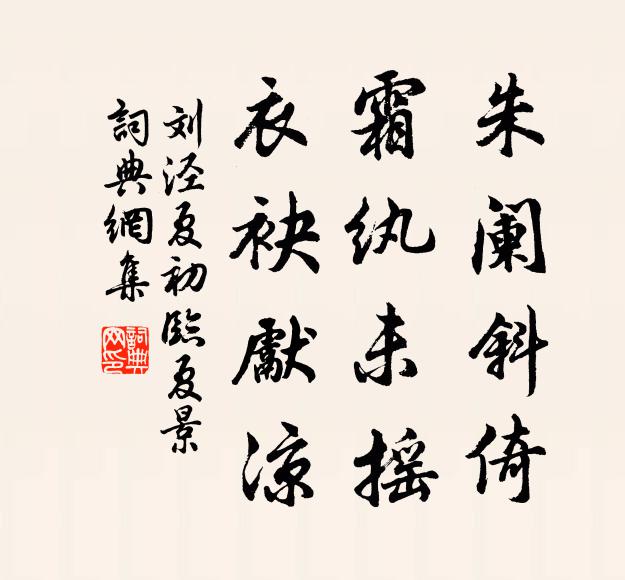 朱阑斜倚
霜纨未摇
衣袂獻凉
刘泾夏初臨夏景
詞典網集
詞典網印